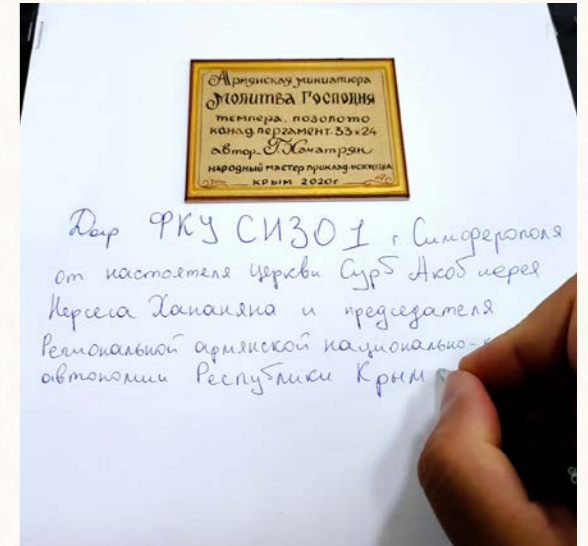 Армянская миниатюра
Молитва Господня
темпера, позолото
канад.пергамент.33х24
автор-Г.Хачатрян
народный мастер приклад.искусства
крым 2020г
Дар ФКУ СИЗО 1 г. Симферополя
от настоятеля церкви Сурб Акоб иерея
Нерсеса Хананяна и председателя
Региональной армянской национально-к
автономии Республики Крым